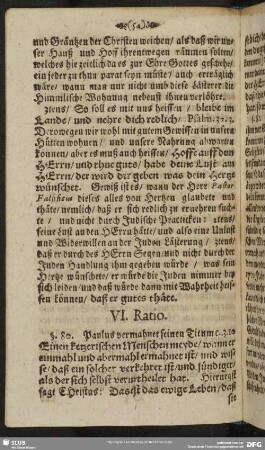 (54)
und Gräntzen der Christen weichen / als daß wir un-
ser Hauß und Hoff ihrentwegen räumten solten /
welches hie zeitlich da es zur Ehre Gottes geschehe /
ein jeder zu thun parat seyn müste / auch erträglich
wäre / wann man nur nicht umb diese Lästerer die
Himmlische Wohnung nebenst ihnen verlöhre.
3tens / So soll es mit uns heissen / bleibe im
Lande / und nehre dich redlich / Psalm. 37. 3.
Derowegen wir wohl mit gutem Gewissen in unsere
Hütten wohnen / und unsere Nahrung abwarten
können / aber es muß auch heissen / Hoffe auff den
HErrn / und thue gutes / habe deine Lust am
HErrn / der wird dir geben was dein Hertz
wünschet. Gewiß ist es / wann der Herr Pastor
dieses alles von Hertzen glaubete und
thäte / nemlich / daß er sich redlich zu ernehren such-
te / und nicht durch Jüdische Practicken / 2tens /
seine Lust an den HErrn hätte / und also eine Unlust
und Widerwillen an der Juden Lästerung / 3tens /
daß er durch des HErrn Segen / und nicht durch der
Juden Handlung ihm gegeben würde / was sein
Hertz wünschete / er würde die Juden nimmer bey
sich leiden / und daß würde dann mit Wahrheit heis-
sen können / daß er gutes thäte.
VI. Ratio.
§. 80. Paulus vermahnet seinen Titum c. 3. 10
Einen ketzerischen Menschen meyde / wann er
einmahl und abermahl ermahnet ist / und wis-
se / daß ein solcher verkehret ist / und sündiget /
als der sich selbst verurtheilet hat. Hierneqst
sagt CHristus: Das ist das ewige Leben / daß
sie
SLUB